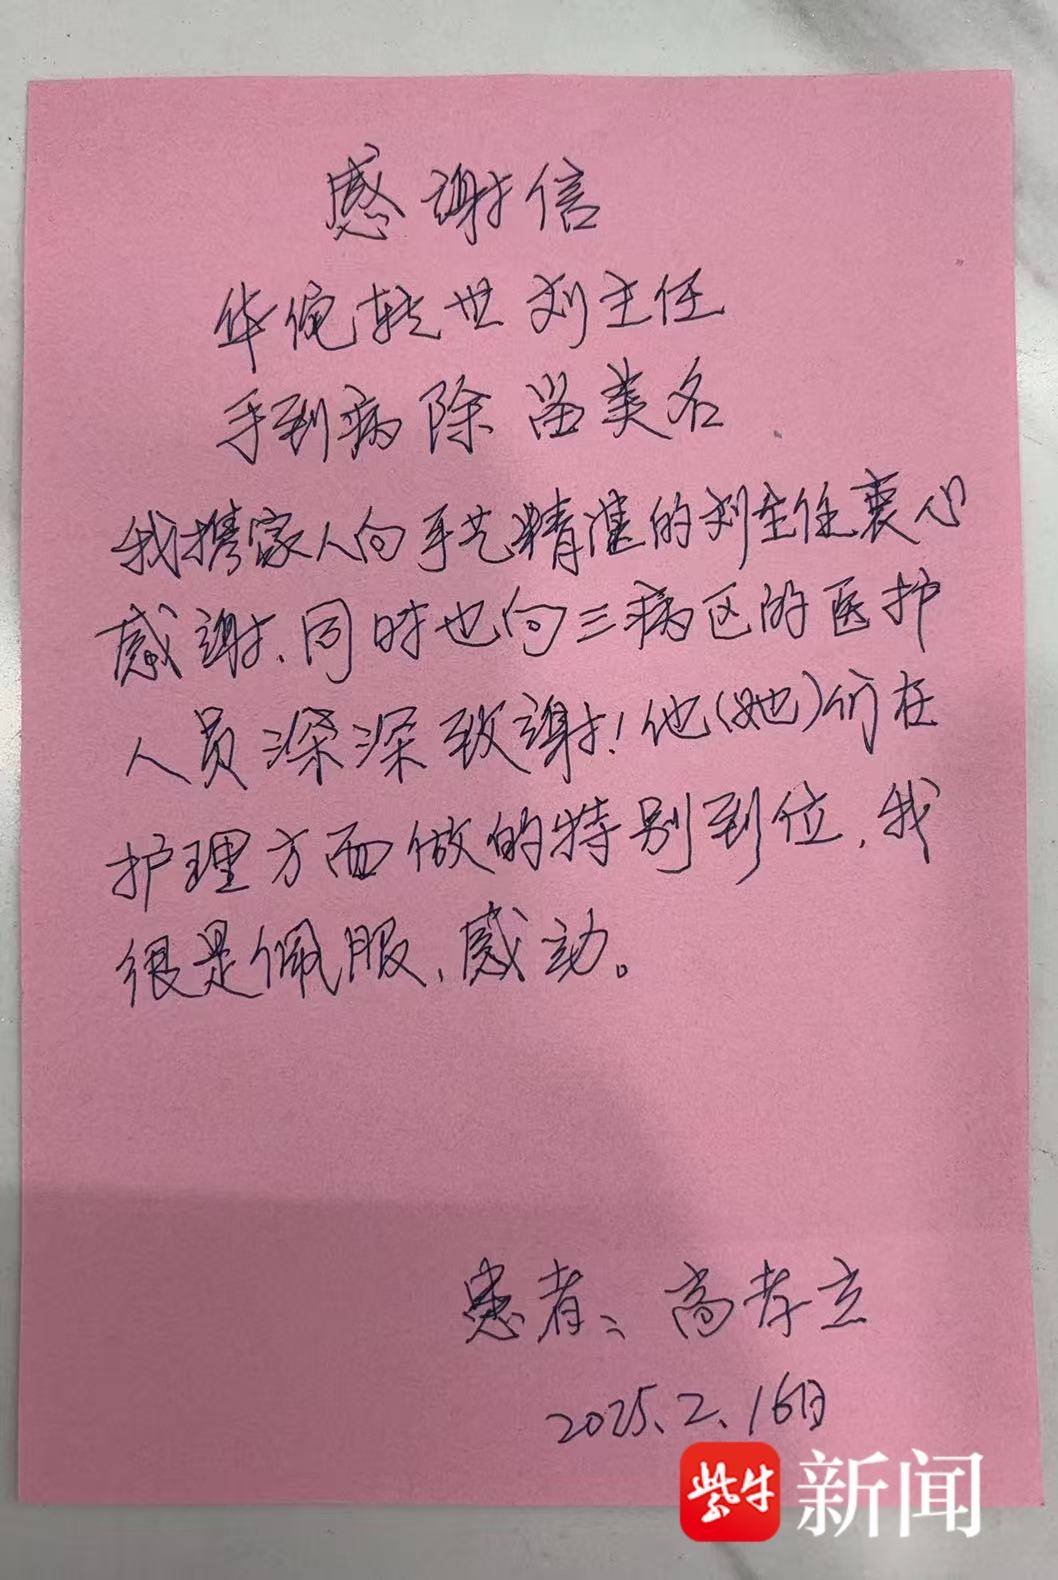 感谢信
华佗转世刘主任
手到病除留美名
我携家人向手艺精湛的刘主任衷心
感谢、同时也向三病区的医护
人员深深致谢！他(她)们在
护理方面做的特别到位，我
很是佩服、感动。
患者：高孝立
2025.2.16日
紫牛新闻